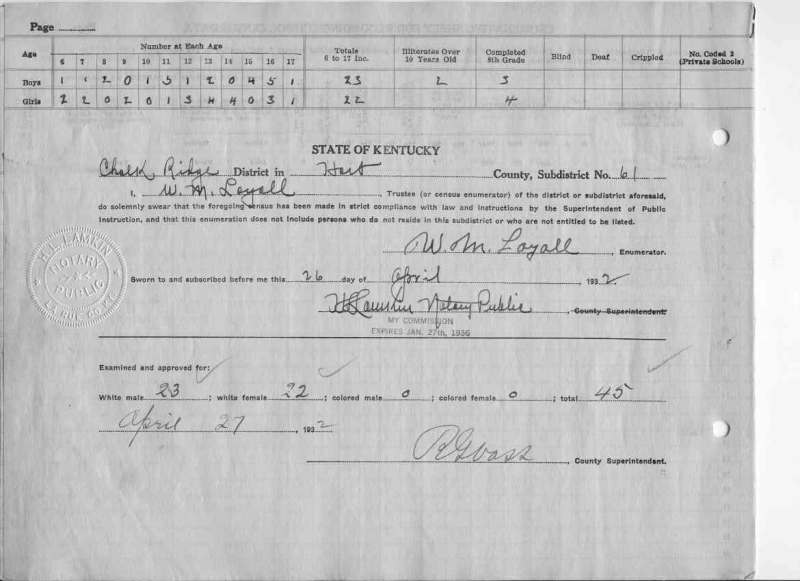 Page
Age Number at Each Age Totals 6 to 17 Inc. Illiterates Over 10 Years Old Completed 8th Grade Blind Deaf Crippled No. Coded 2 (Private Schools)
6 7 8 9 10 11 12 13 14 15 16 17
Boys 1 1 2 0 1 5 1 2 0 4 5 1 23 2 3
Girls 2 2 0 2 0 1 3 4 4 0 3 1 22 4
STATE OF KENTUCKY
Chalk Ridge District in Hart County, Subdistrict No. 61
I, W. M. Loyall, Trustee (or census enumerator) of the district or subdistrict aforesaid,
do solemnly swear that the foregoing census has been made in strict compliance with law and instructions by the Superintendent of Public
Instruction, and that this enumeration does not include persons who do not reside in this subdistrict or who are not entitled to be listed.
W. M. Loyall, Enumerator.
H. L. LAMKIN NOTARY PUBLIC LARUE CO. KY.
Sworn to and subscribed before me this 26 day of April, 1932
H L Lamkin Notary Public, County Superintendent.
MY COMMISSION
EXPIRES JAN. 27th, 1936
Examined and approved for:
White male 23; white female 22; colored male 0; colored female 0; total 45
April 27, 1932
County Superintendent.